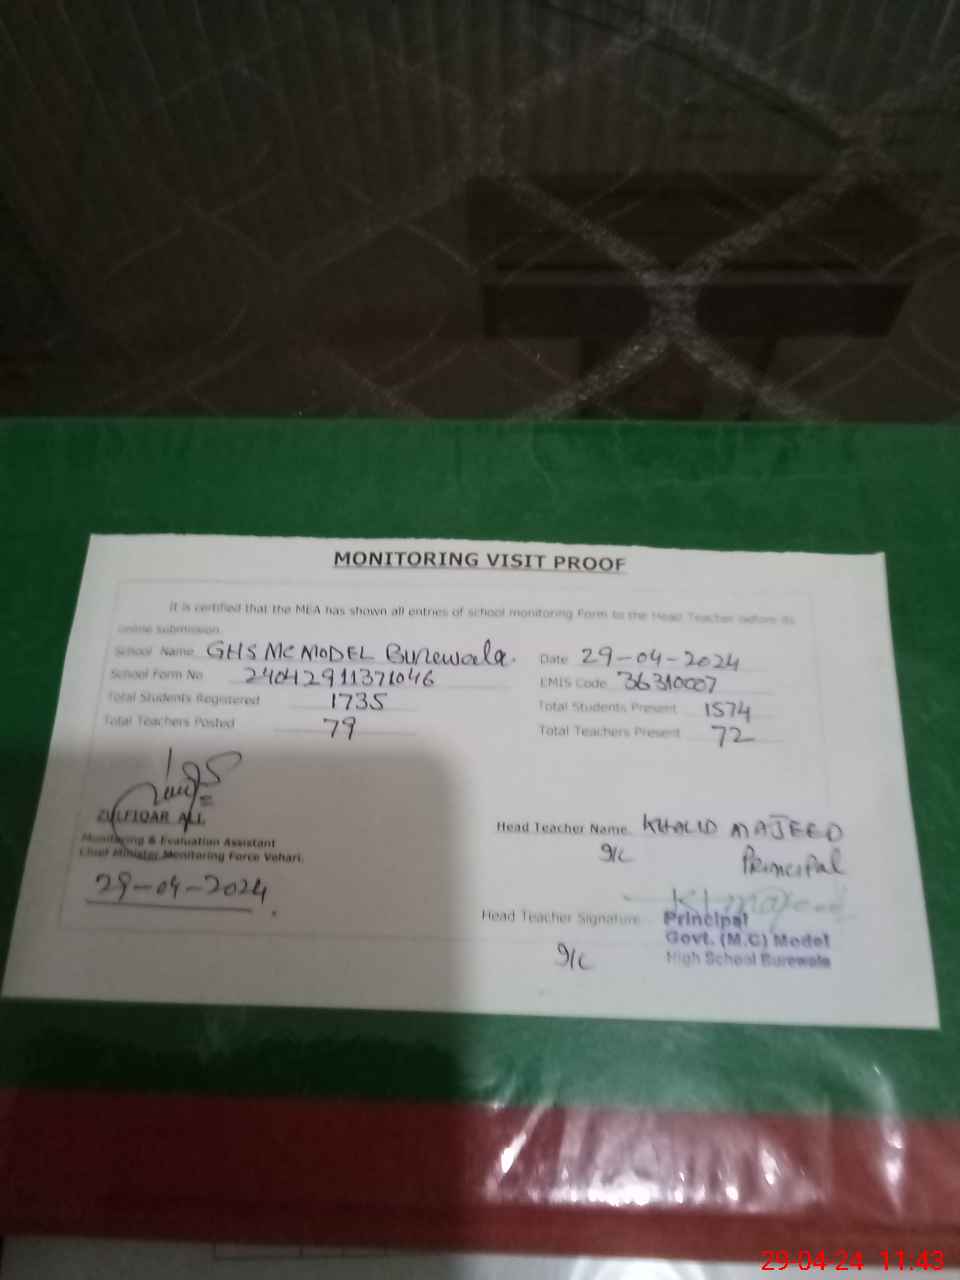 MONITORING VISIT PROOF
It is certified that the MEA has shown all entries of school monitoring Form to the Head Teacher before its
online submission.
School Name GHS MC MODEL Burewala. Date 29-04-2024
School Form No 24042911371046 EMIS Code 36310007
Total Students Registered 1735 Total Students Present 1574
Total Teachers Posted 79 Total Teachers Present 72
ZULFIQAR ALI
Monitoring & Evaluation Assistant
Chief Minister Monitoring Force Vehari.
29-04-2024
Head Teacher Name KHALID MAJEED
I/C Principal
Head Teacher Signature
Principal
Govt. (M.C) Model
High School Burewala
I/C
29-04-24 11:43